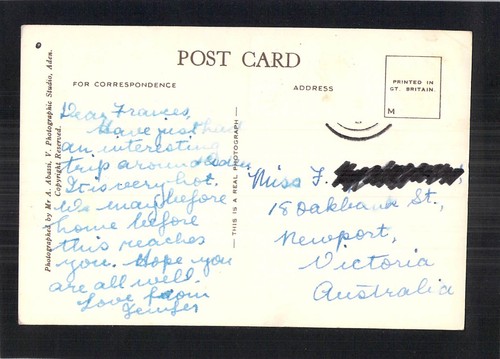 POST CARD
FOR CORRESPONDENCE
ADDRESS
PRINTED IN
GT. BRITAIN.
M
Photographed by Mr A. Abassi, V. Photographic Studio, Aden.
Copyright Reserved.
THIS IS A REAL PHOTOGRAPH
Dear Frances,
Have just had
an interesting
trip around Aden.
It is very hot.
We may be fore
home before
this reaches
you. Hope you
are all well.
Love from
Miss F.
18 Oakbank St.,
Newport,
Victoria
Australia